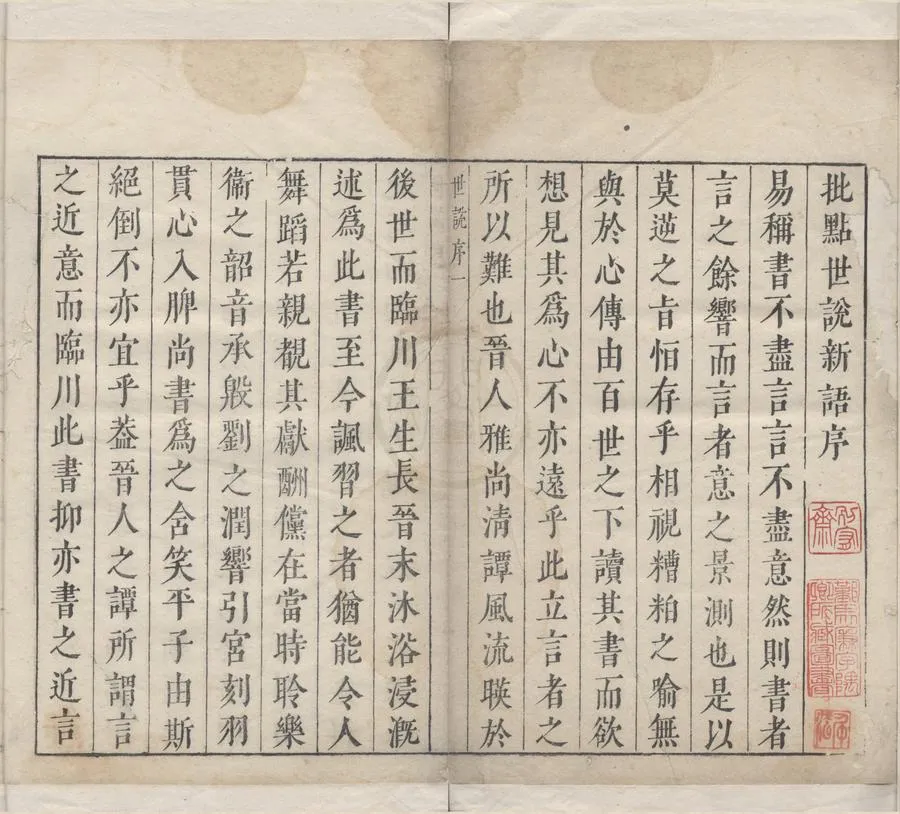 批點世說新語序
易稱書不盡言言不盡意然則書者
言之餘響而言者意之景測也是以
莫逆之旨怕存乎相視糟粕之喻無
與於心傳由百世之下讀其書而欲
想見其爲心不亦遠乎此立言者之
所以難也晉人雅尚清譚風流暎於
世說序一
後世而臨川王生長晉末沐浴浸漑
述爲此書至今諷習之者猶能令人
舞蹈若親覩其獻酬儻在當時聆樂
衞之韶音承殷劉之潤響引宮刻羽
貫心入脾尚書爲之含笑平子由斯
絕倒不亦宜乎葢晉人之譚所謂言
之近意而臨川此書抑亦書之近言